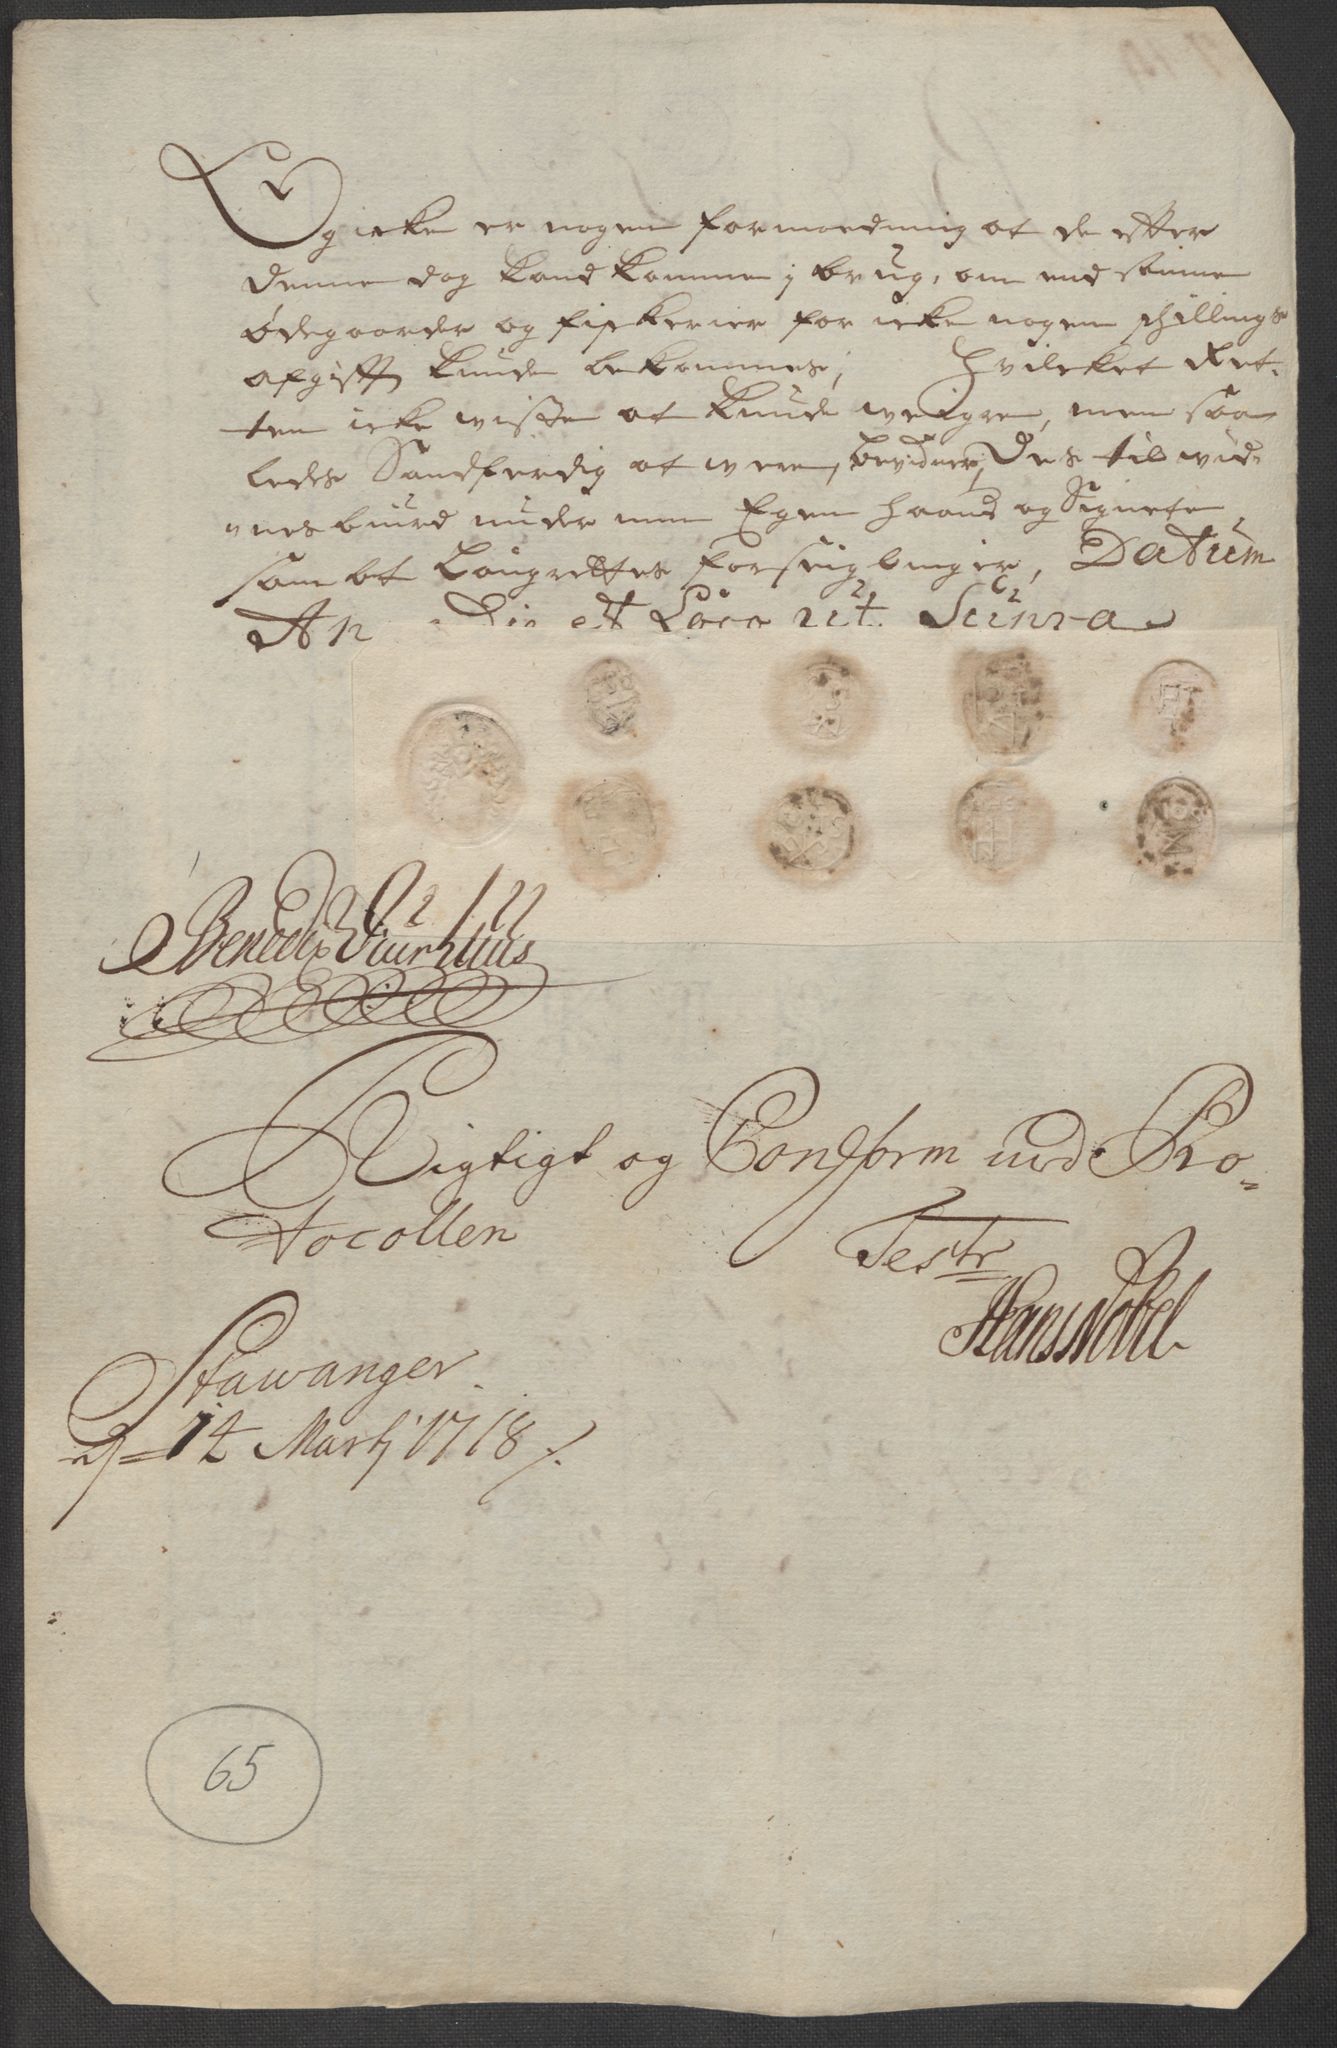 Og icke er nogen formoedning at de effter
denne dag kand komme i brug, om end samme
ødegaarder og fiskerier for icke nogen schillings
afgifft kunde bekommes, Hvilcket Ret-
ten icke wiste at kunde weigre, men saa-
ledes Sandferdig at were, bevidner, Des til wid-
nesbiurd under min Egen haand og Signete,
sambt Laugrettes forseiglinger, Datum
An Die et Loco ut Supra
Benedix
Rigtigt og Conform med Pro-
tocollen
Testr
Hans Nobel
Stawanger
d= 14 Martj 1718 /.
65